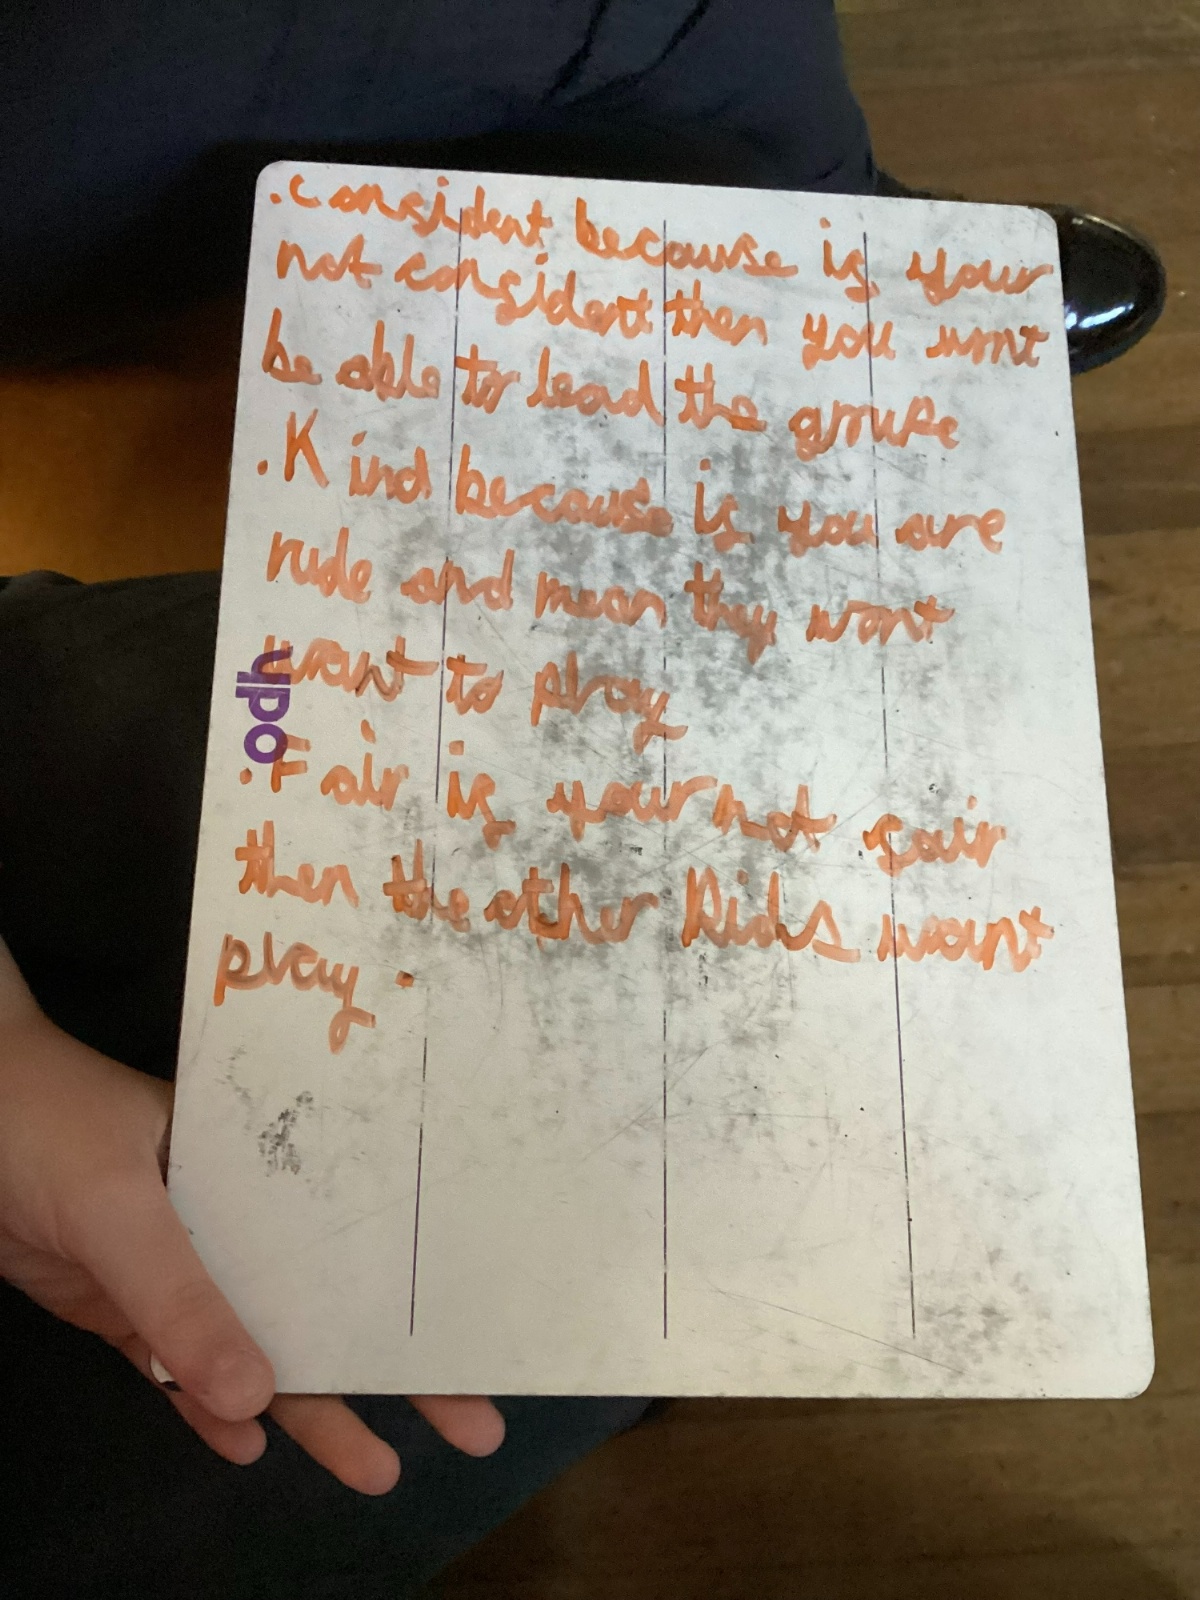 .Confident because if your
not confident then you wont
be able to lead the groupe
.Kind because if you are
rude and mean they wont
want to play
.Fair if your not fair
then the other Kids wont
play.
ypo